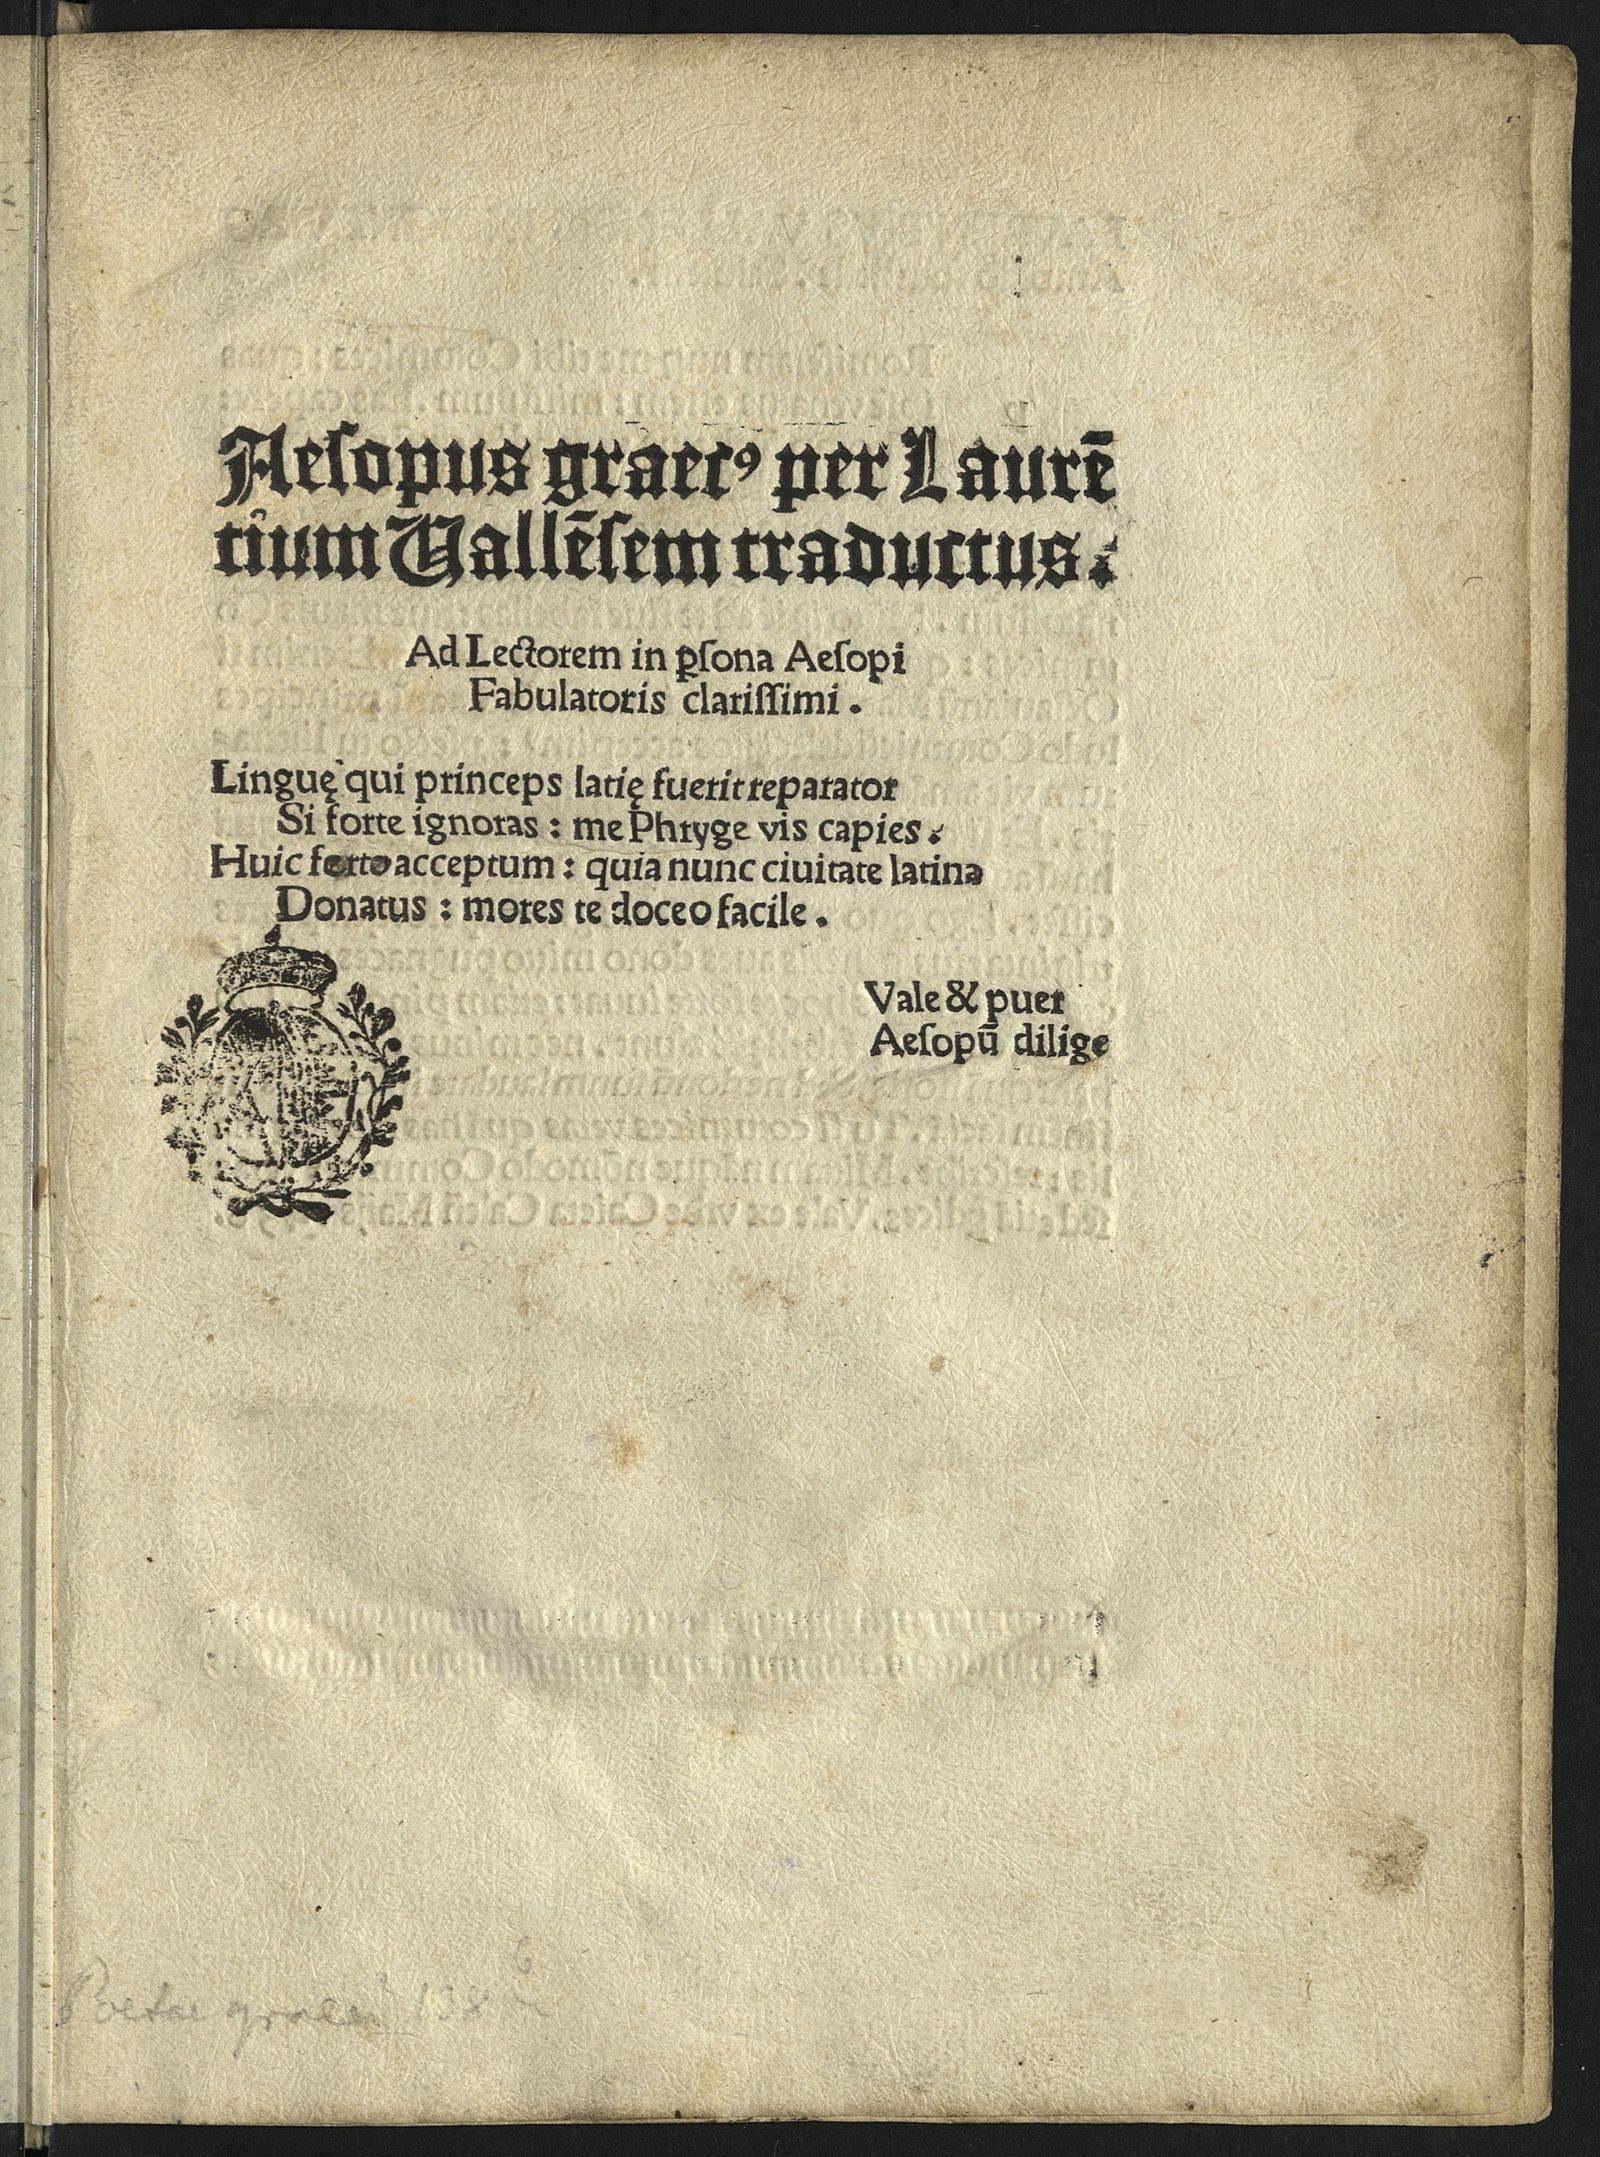 Aeſopus graecꝰ per Laurē
tium Vallēſem traductus.
Ad Lectorem in ꝑſona Aeſopi
Fabulatoris clariſſimi.
Linguę qui princeps latię fuerit reparator
Si forte ignoras: me Phryge vis capies.
Huic ferto acceptum: quia nunc ciuitate latina
Donatus: mores te doceo facile.
Vale & puer
Aeſopū dilige
Poetae graeci 138